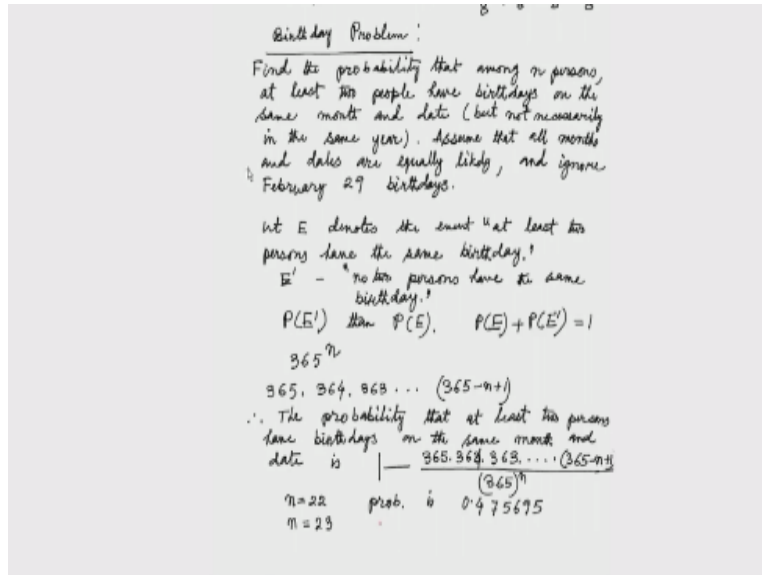 Birthday Problem :
Find the probability that among n persons,
at least two people have birthdays on the
same month and date (but not necessarily
in the same year). Assume that all months
and dates are equally likely, and ignore
February 29 birthdays.
Let E denotes the event "at least two
persons have the same birthday."
E' - "no two persons have the same
birthday."
P(E') than P(E). P(E) + P(E') = 1
365^n
365. 364. 363 ... (365-n+1)
∴ The probability that at least two persons
have birthdays on the same month and
date is 1 - 365. 364. 363. .... (365-n+1)
(365)^n
n=22 prob. is 0.475695
n=23